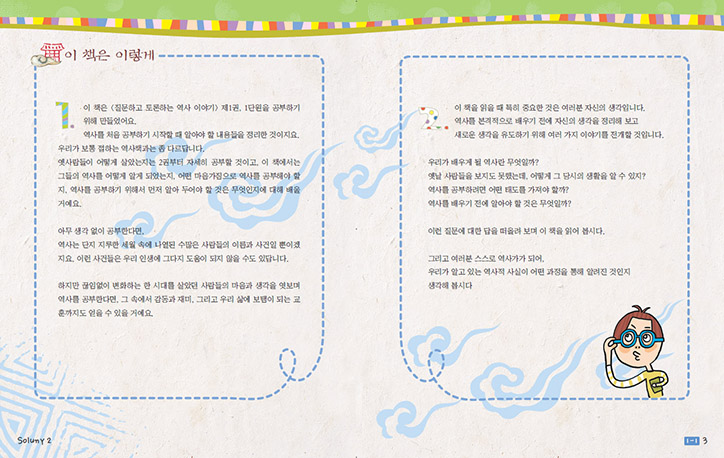 이 책은 이렇게
1. 이 책은 〈질문하고 토론하는 역사 이야기〉 제1권, 1단원을 공부하기
위해 만들었어요.
역사를 처음 공부하기 시작할 때 알아야 할 내용들을 정리한 것이지요.
우리가 보통 접하는 역사책과는 좀 다르답니다.
옛사람들이 어떻게 살았는지는 2권부터 자세히 공부할 것이고, 이 책에서는
그들의 역사를 어떻게 알게 되었는지, 어떤 마음가짐으로 역사를 공부해야 할
지, 역사를 공부하기 위해서 먼저 알아 두어야 할 것은 무엇인지에 대해 배울
거예요.
아무 생각 없이 공부한다면,
역사는 단지 지루한 세월 속에 나열된 수많은 사람들의 이름과 사건일 뿐이겠
지요. 이런 사건들은 우리 인생에 그다지 도움이 되지 않을 수도 있답니다.
하지만 끊임없이 변화하는 한 시대를 살았던 사람들의 마음과 생각을 엿보며
역사를 공부한다면, 그 속에서 감동과 재미, 그리고 우리 삶에 보탬이 되는 교
훈까지도 얻을 수 있을 거예요.
2. 이 책을 읽을 때 특히 중요한 것은 여러분 자신의 생각입니다.
역사를 본격적으로 배우기 전에 자신의 생각을 정리해 보고
새로운 생각을 유도하기 위해 여러 가지 이야기를 전개할 것입니다.
우리가 배우게 될 역사란 무엇일까?
옛날 사람들을 보지도 못했는데, 어떻게 그 당시의 생활을 알 수 있지?
역사를 공부하려면 어떤 태도를 가져야 할까?
역사를 배우기 전에 알아야 할 것은 무엇일까?
이런 질문에 대한 답을 떠올려 보며 이 책을 읽어 봅시다.
그리고 여러분 스스로 역사가가 되어,
우리가 알고 있는 역사적 사실이 어떤 과정을 통해 알려진 것인지
생각해 봅시다
Soluny 2
1-1 3